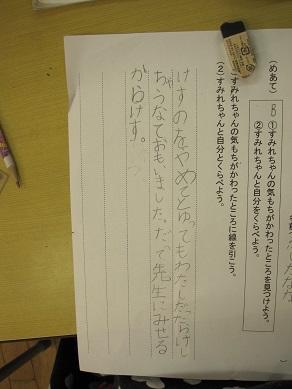 (めあて)
B ①すみれちゃんの気もちがかわったところを見つけよう。
②すみれちゃんと自分をくらべよう。
すみれちゃんの気もちがかわったところに線を引こう。
(2)すみれちゃんと自分とくらべよう。
けすのをやめてとゆってもわたしだたらけし
ちゃうなておもいました。だって先生にみせる
からけす。